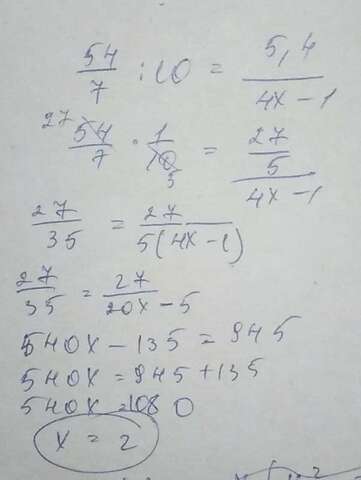 54/7 : 10 = 5,4/(4x - 1)
27 54/7 · 1/10 5 = (27/5)/(4x - 1)
27/35 = 27/5(4x - 1)
27/35 = 27/(20x - 5)
540x - 135 = 945
540x = 945 + 135
540x = 1080
x = 2